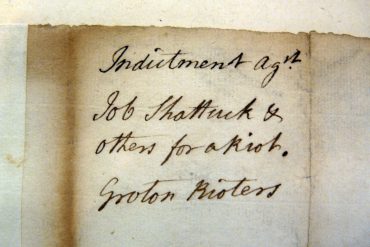 Indictment agst
Job Shattuck &
others for a Riot.
Groton Rioters